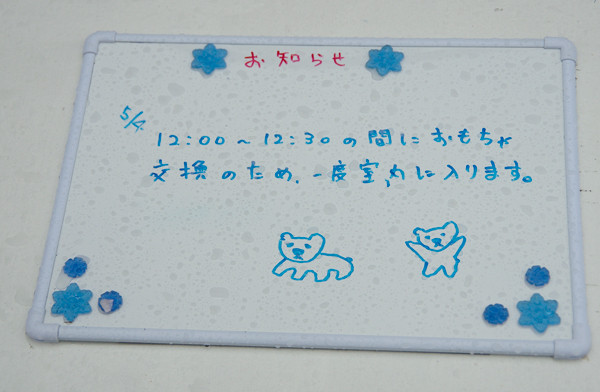 お知らせ
5/4
12:00～12:30の間におもちゃ
交換のため、一度室内に入ります。